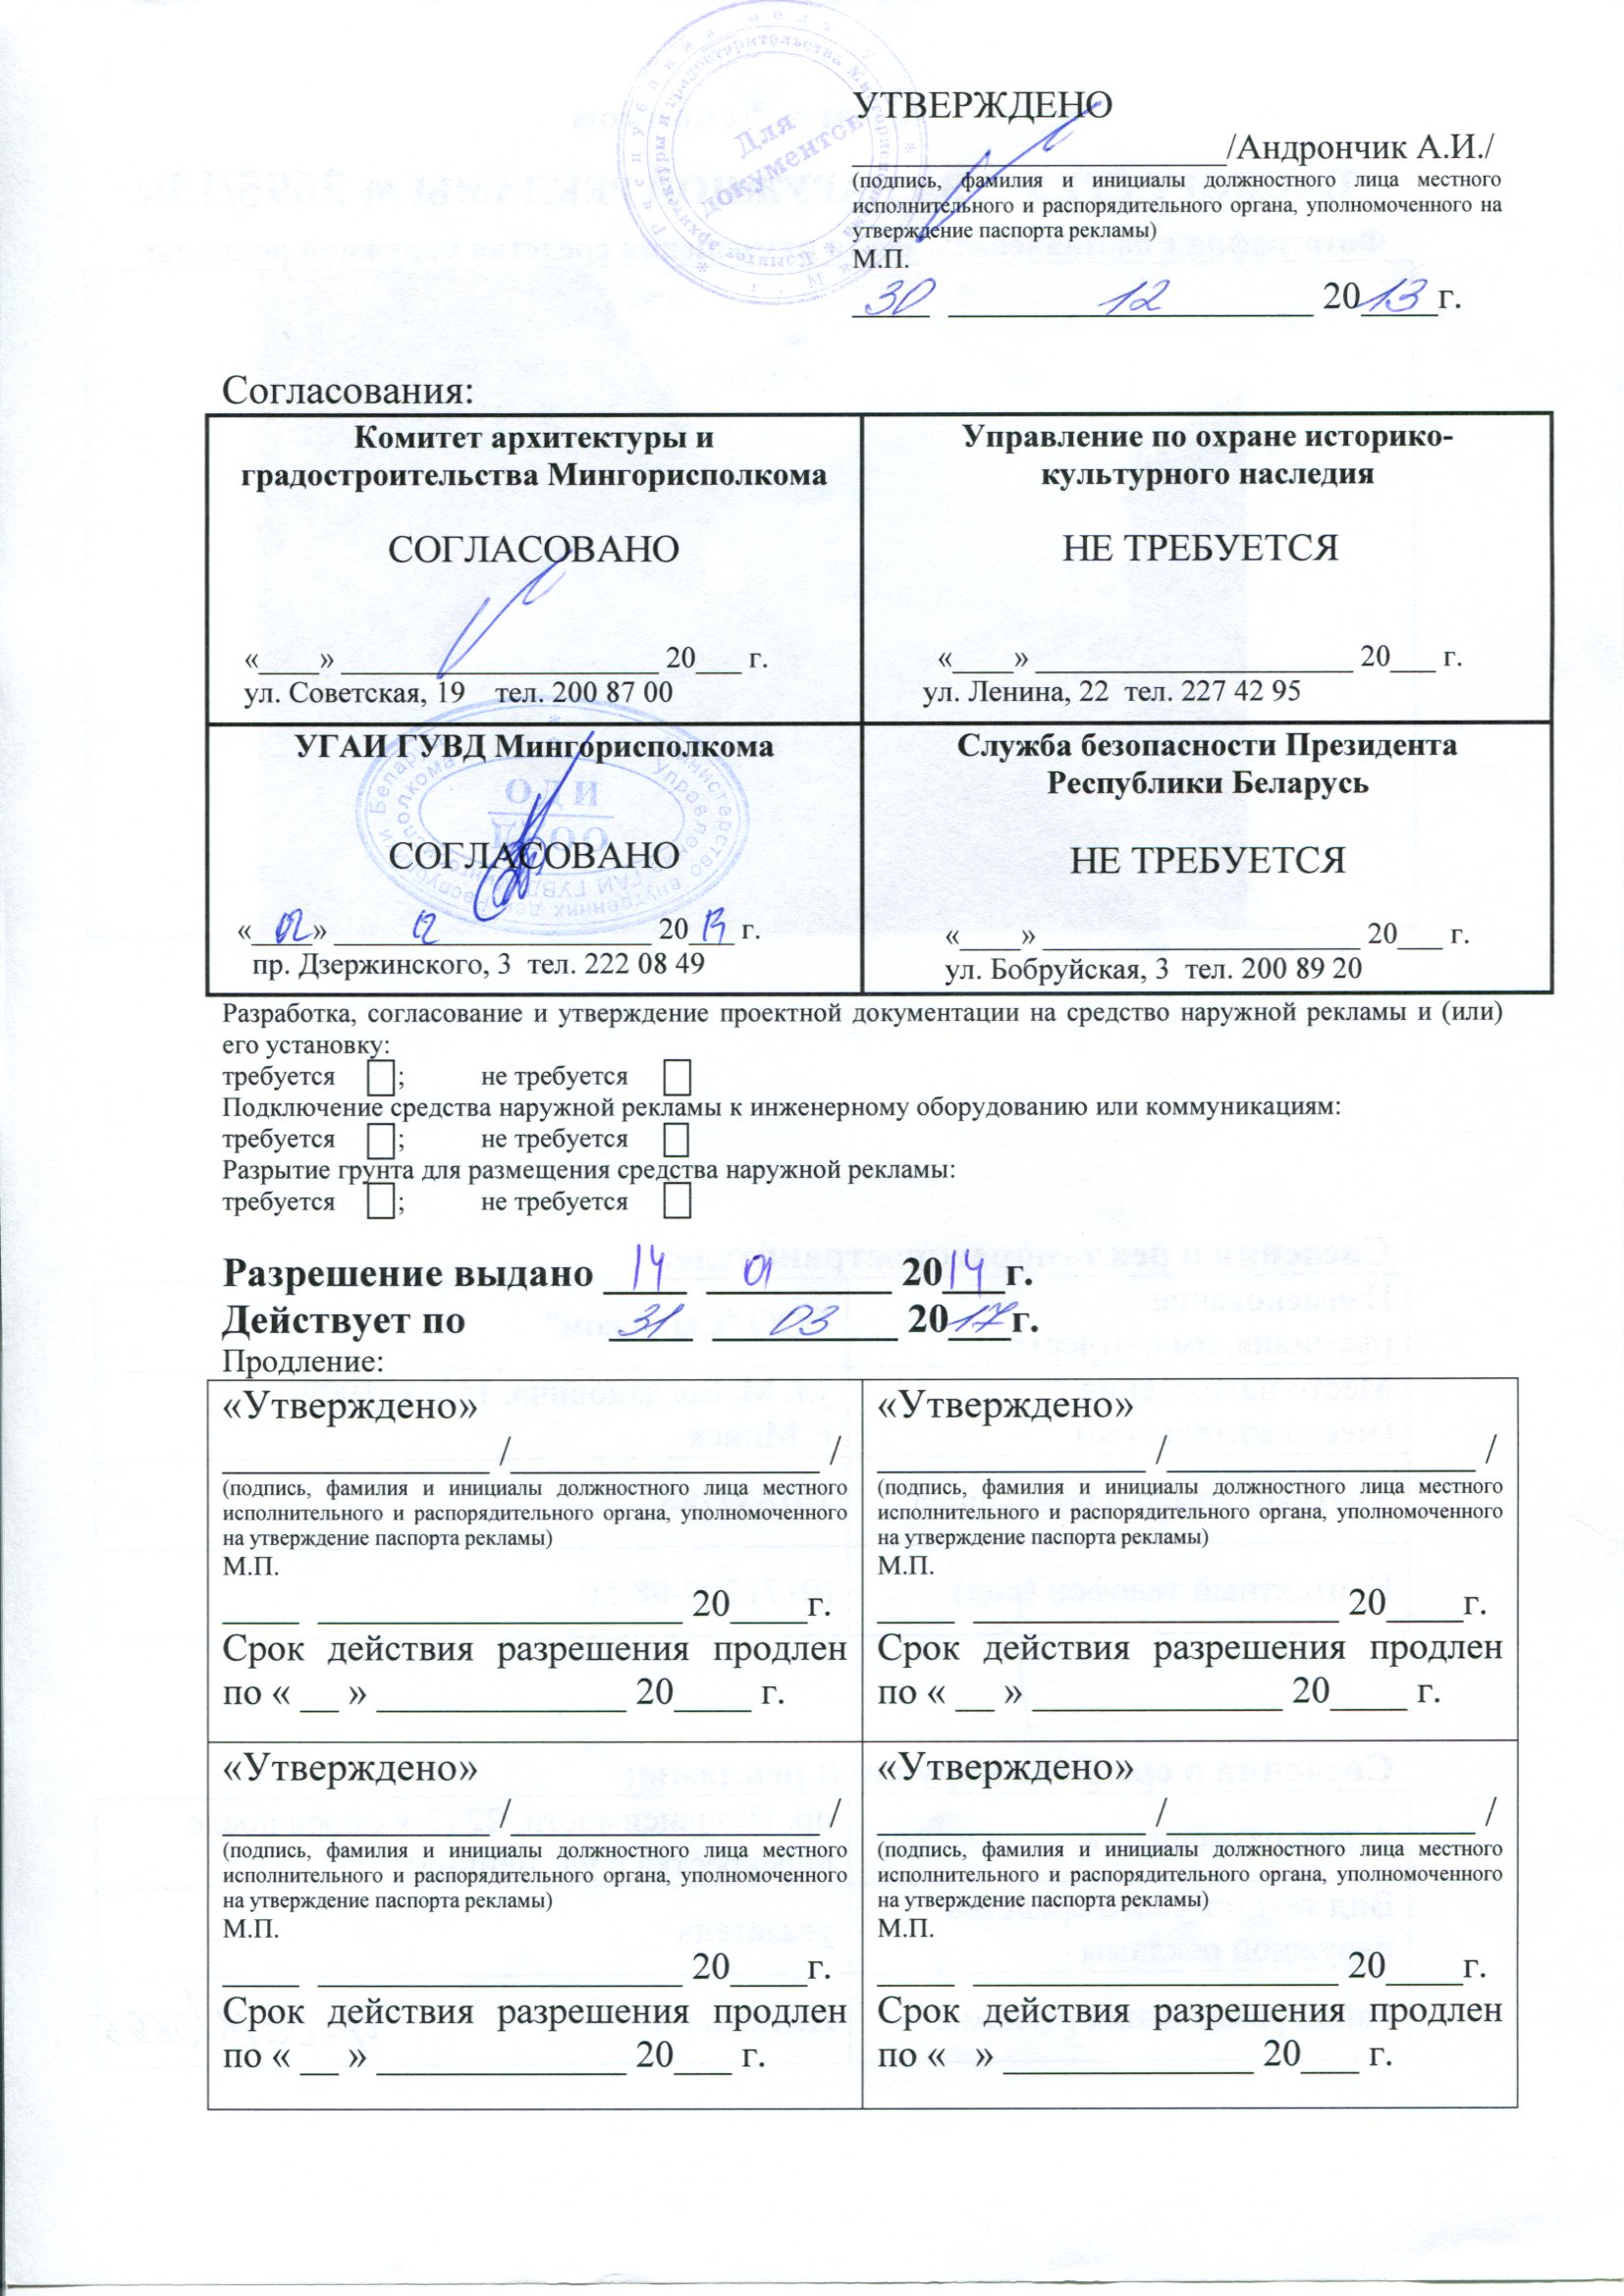 УТВЕРЖДЕНО
____________________/Андрончик А.И./
(подпись, фамилия и инициалы должностного лица местного
исполнительного и распорядительного органа, уполномоченного на
утверждение паспорта рекламы)
М.П.
30 12 2013г.
Для
документов
Согласования:
Комитет архитектуры и
градостроительства Мингорисполкома
СОГЛАСОВАНО
«____» _____________________ 20___ г.
ул. Советская, 19 тел. 200 87 00
Управление по охране историко-
культурного наследия
НЕ ТРЕБУЕТСЯ
«____» _____________________ 20___ г.
ул. Ленина, 22 тел. 227 42 95
УГАИ ГУВД Мингорисполкома
ОДИ
СОГЛАСОВАНО
«____» _____________________ 20___ г.
пр. Дзержинского, 3 тел. 222 08 49
Служба безопасности Президента
Республики Беларусь
НЕ ТРЕБУЕТСЯ
«____» _____________________ 20___ г.
ул. Бобруйская, 3 тел. 200 89 20
Разработка, согласование и утверждение проектной документации на средство наружной рекламы и (или)
его установку:
требуется ; не требуется
Подключение средства наружной рекламы к инженерному оборудованию или коммуникациям:
требуется ; не требуется
Разрытие грунта для размещения средства наружной рекламы:
требуется ; не требуется
Разрешение выдано 14 01 2014г.
Действует по 31 03 2017г.
Продление:
«Утверждено»
______________ /________________ /
(подпись, фамилия и инициалы должностного лица местного
исполнительного и распорядительного органа, уполномоченного
на утверждение паспорта рекламы)
М.П.
____ ___________________ 20____г.
Срок действия разрешения продлен
по « __ » _____________ 20____ г.
«Утверждено»
______________ /________________ /
(подпись, фамилия и инициалы должностного лица местного
исполнительного и распорядительного органа, уполномоченного
на утверждение паспорта рекламы)
М.П.
____ ___________________ 20____г.
Срок действия разрешения продлен
по « __ » _____________ 20____ г.
«Утверждено»
______________ /________________ /
(подпись, фамилия и инициалы должностного лица местного
исполнительного и распорядительного органа, уполномоченного
на утверждение паспорта рекламы)
М.П.
____ ___________________ 20____г.
Срок действия разрешения продлен
по « __ » _____________ 20___ г.
«Утверждено»
______________ /________________ /
(подпись, фамилия и инициалы должностного лица местного
исполнительного и распорядительного органа, уполномоченного
на утверждение паспорта рекламы)
М.П.
____ ___________________ 20____г.
Срок действия разрешения продлен
по « » _____________ 20___ г.